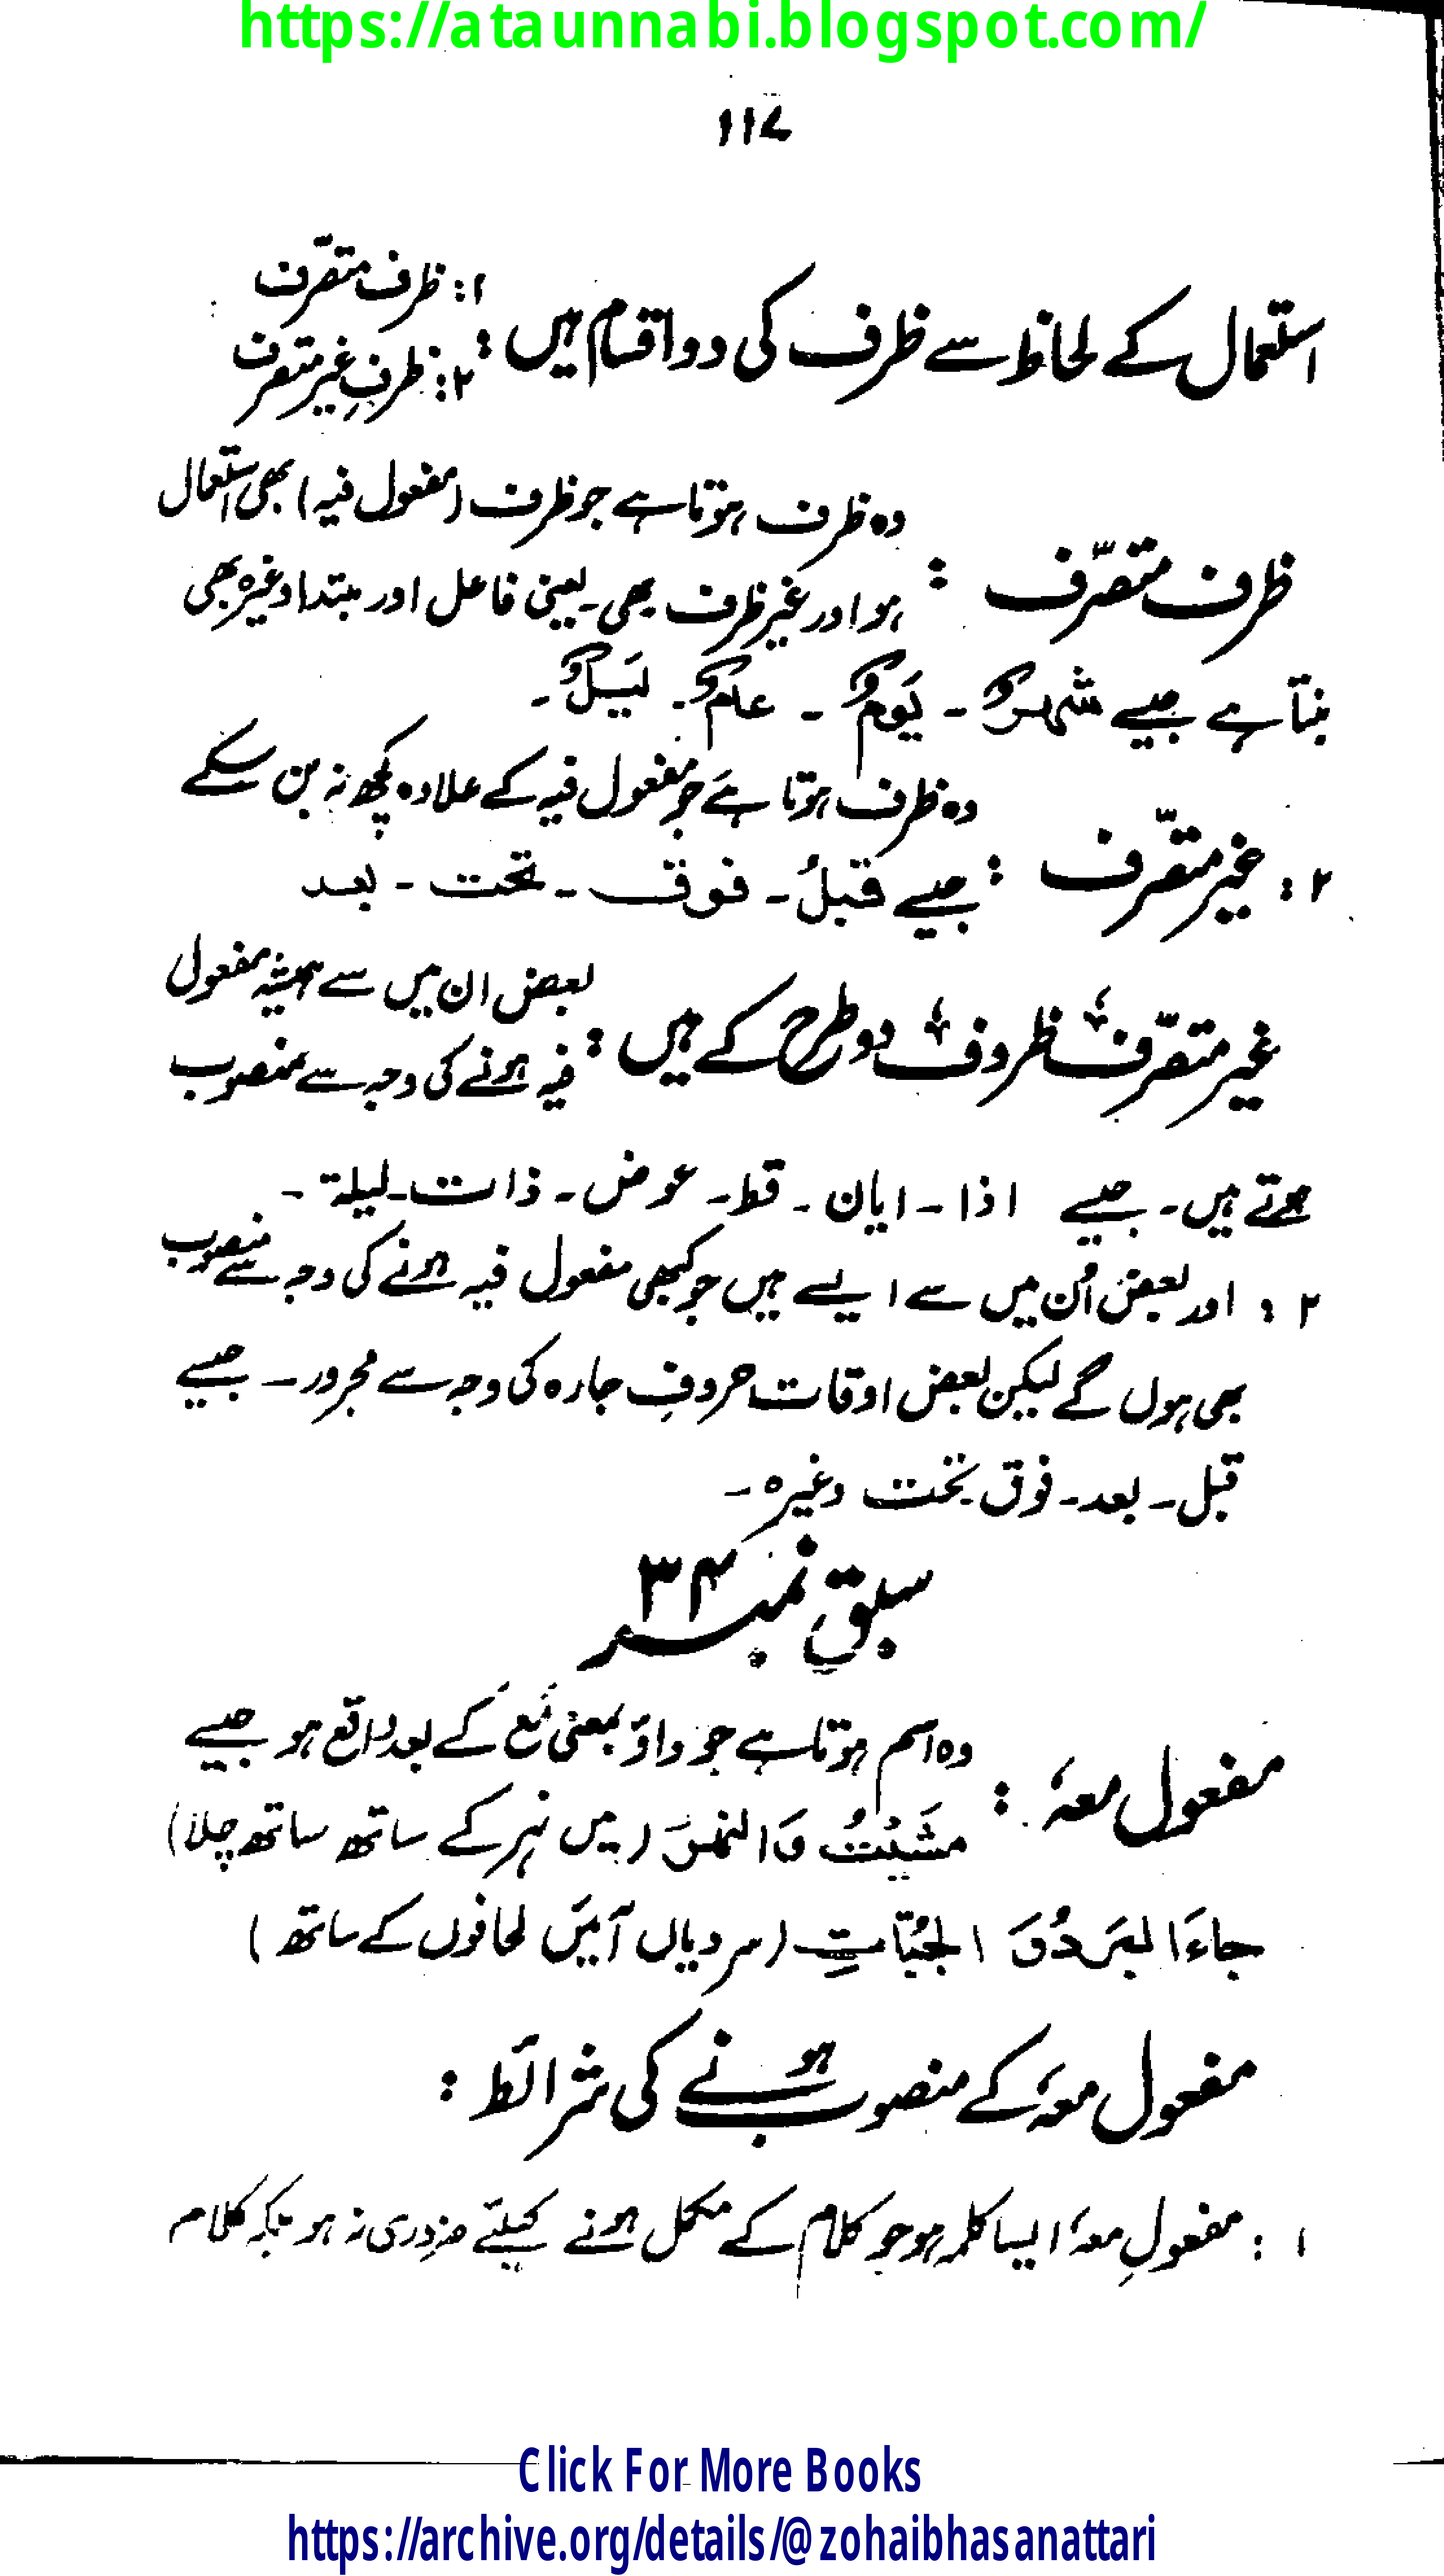 https://ataunnabi.blogspot.com/
۱۱۷
استعمال کے لحاظ سے ظرف کی دو اقسام ہیں :
۱: ظرف متصرّف
۲: ظرفِ غیر متصرف
ظرف متصرّف :
وہ ظرف ہوتا ہے جو ظرف (مفعول فیہ) بھی استعمال
ہو اور غیر ظرف بھی۔ یعنی فاعل اور مبتدا وغیرہ بھی
بنتا ہے جیسے شہرٌ ۔ یَومٌ ۔ عامٌ ۔ لَیلٌ ۔
۲ : غیر متصّرف :
وہ ظرف ہوتا ہے جو مفعول فیہ کے علاوہ کچھ نہ بن سکے
جیسے قبلُ ۔ فوق ۔ تحت ۔ بعد
غیر متصّرف ظروف دو طرح کے ہیں :
بعض ان میں سے ہمیشہ مفعول
فیہ ہونے کی وجہ سے منصوب
ہوتے ہیں ۔ جیسے اذا ۔ ایان ۔ قط ۔ عوض ۔ ذات ۔ لیلۃ ۔
۲ : اور بعض اُن میں سے ایسے ہیں جو کبھی مفعول فیہ ہونے کی وجہ سے منصوب
بھی ہوں گے لیکن بعض اوقات حروفِ جارہ کی وجہ سے مجرور ۔ جیسے
قبل ۔ بعد ۔ فوق تحت وغیرہ ۔
سبق نمبر ۳۴
مفعول معہٗ :
وہ اسم ہوتا ہے جو واؤ بمعنی مَعَ کے بعد واقع ہو جیسے
مشَیْتُ وَالنھرَ (میں نہر کے ساتھ ساتھ چلا)
جاءَ البَردُ وَ الجُبّاتِ (سردیاں آئیں لحافوں کے ساتھ)
مفعول معہٗ کے منصوب ہونے کی شرائط :
۱ : مفعولِ معہٗ ایسا کلمہ ہو جو کلام کے مکمل ہونے کیلئے ضروری نہ ہو بلکہ کلام
Click For More Books
https://archive.org/details/@zohaibhasanattari